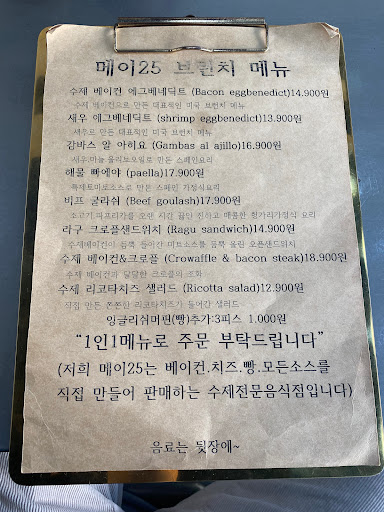 메이25 브런치 메뉴
수제 베이컨 에그베네딕트 (Bacon eggbenedict)14.900원
수제 베이컨으로 만든 대표적인 미국 브런치 메뉴
새우 에그베네딕트 (shrimp eggbenedict)13.900원
새우로 만든 대표적인 미국 브런치 메뉴
감바스 알 아히요 (Gambas al ajillo)16.900원
새우.마늘 올리브오일로 만든 스페인요리
해물 빠에야 (paella)17.900원
특제토마토소스로 만든 스페인 가정식요리
비프 굴라쉬 (Beef goulash)17.900원
소고기 파프리카를 오랜 시간 끓인 진하고 매콤한 헝가리가정식 요리
라구 크로플샌드위치 (Ragu sandwich)14.900원
수제베이컨이 듬뿍 들어간 미트소스를 듬뿍 올린 오픈샌드위치
수제 베이컨&크로플 (Crowaffle & bacon steak)18.900원
수제 베이컨과 달달한 크로플의 조화
수제 리코타치즈 샐러드 (Ricotta salad)12.900원
직접 만든 쫀쫀한 리코타치즈가 들어간 샐러드
잉글리쉬머핀(빵)추가:3피스 1.000원
"1인1메뉴로 주문 부탁드립니다"
(저희 메이25는 베이컨.치즈.빵.모든소스를
직접 만들어 판매하는 수제전문음식점입니다)
음료는 뒷장에~